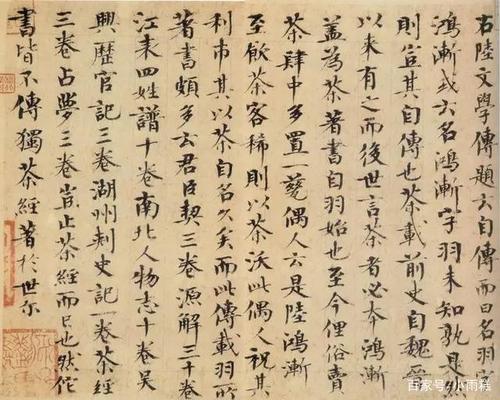 右陸文學傳題云自傳而曰名羽字
鴻漸或云名鴻漸字羽未知孰是然
則豈其自傳也茶載前史自魏晉
以來有之而後世言茶者必本鴻漸
蓋為茶著書自羽始也至今俚俗賣
茶肆中多置一甆偶人云是陸鴻漸
至飲茶客稀則以茶沃此偶人祝其
利市其以茶自名久矣而此傳載羽所
著書頗多云君臣契三卷源解三十卷
江表四姓譜十卷南北人物志十卷吳
興歷官記三卷湖州刺史記一卷茶經
三卷占夢三卷豈止茶經而已也然佗
書皆不傳獨茶經著於世尓
百家号/小雨糕